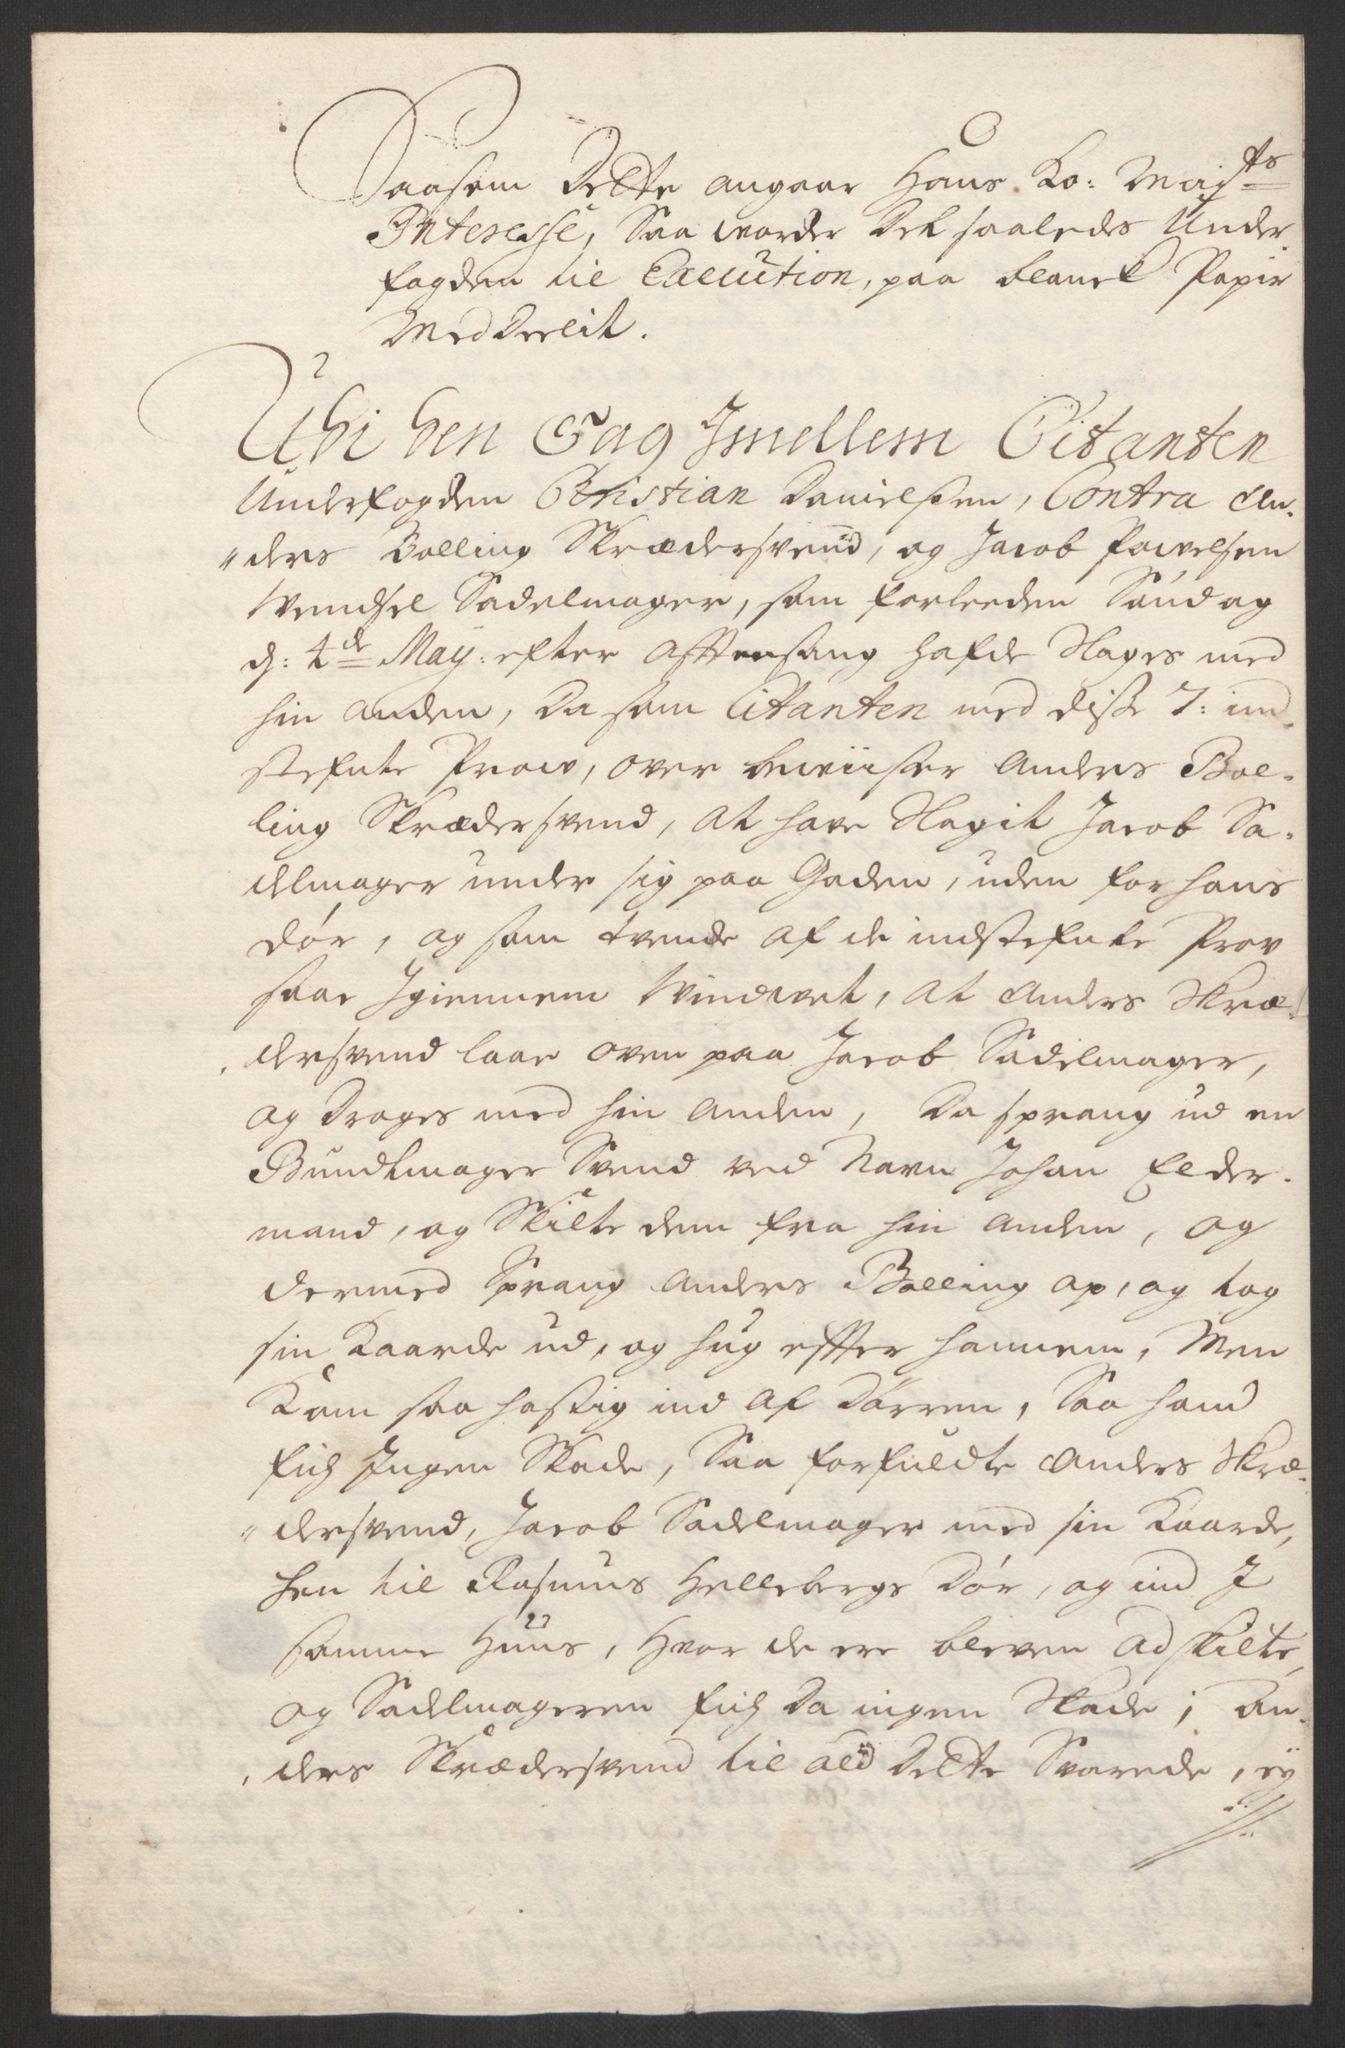 Saasom Dette angaar Hans Ko: Maj^ts
Interesse, Saa worder Det saaledes Under
fogden til Execution, paa blanct Papir
Meddeelit.
Udi den Sag Imellem Citanten
Underfogden Christian Danielsen, Contra An-
"ders Bolling Skrædersvend, og Jacob Powelsen
Wendsel Sadelmager, som forleeden Søndag
d: 4^de May: efter Afftensang hafde Slages med
hin anden, Da som Citanten med disse 7: ind-
stefnte Prow, over beviiser Anders Bol-
ling Skrædersvend, at have Slagit Jacob Sa-
delmager under sig paa Gaden, uden for hans
dør, og som tvende af de indstefnte Prov
saae Igiennem Vinduet, at Anders Skræ-
dersvend laae oven paa Jacob Sadelmager,
og droges med hin anden, Da sprang ud en
Bundtmager Svend ved Navn Johan Elder-
mand, og Skilte dem fra hin anden, og
dermed Sprang Anders Bolling op, og tog
sin Kaarde ud, og hug effter hannem, Men
Kom saa hastig ind af Dørren, Saa hand
fich Ingen Skade, Saa forfuldte Anders Skræ-
"dersvend, Jacob Sadelmager med sin Kaarde,
hen til Rasmus Hellebergs Dør, og ind I
samme Huus, Hvor de ere bleven adskilte,
og Sadelmageren fich Da ingen Skade; An-
ders Skrædersvend til ald Dette Svarede, ey